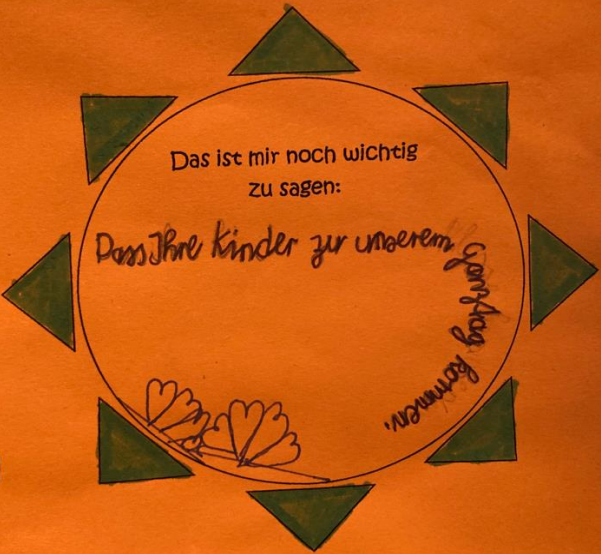 Das ist mir noch wichtig
zu sagen:
Dass Ihre Kinder zu unserem
kommen.